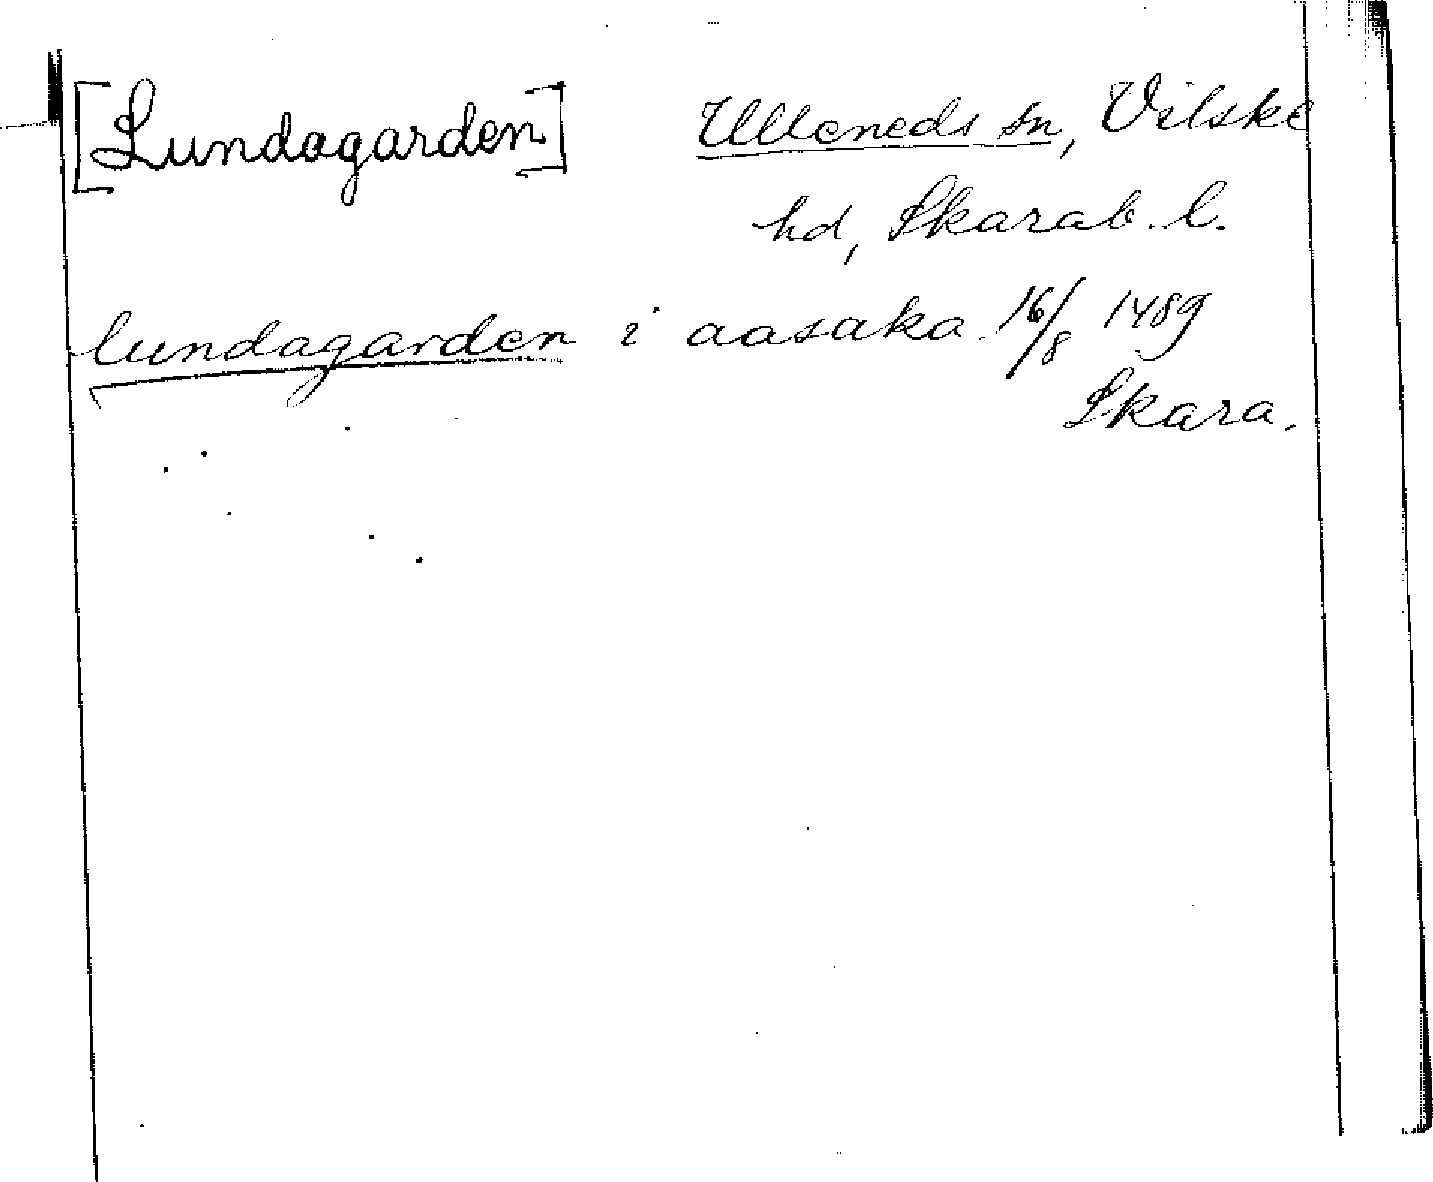 [Lundagarden] Ulleneds sn, Vilske
hd, Skarab. l.
lundagarden i aasaka 16/8 1489
Skara.